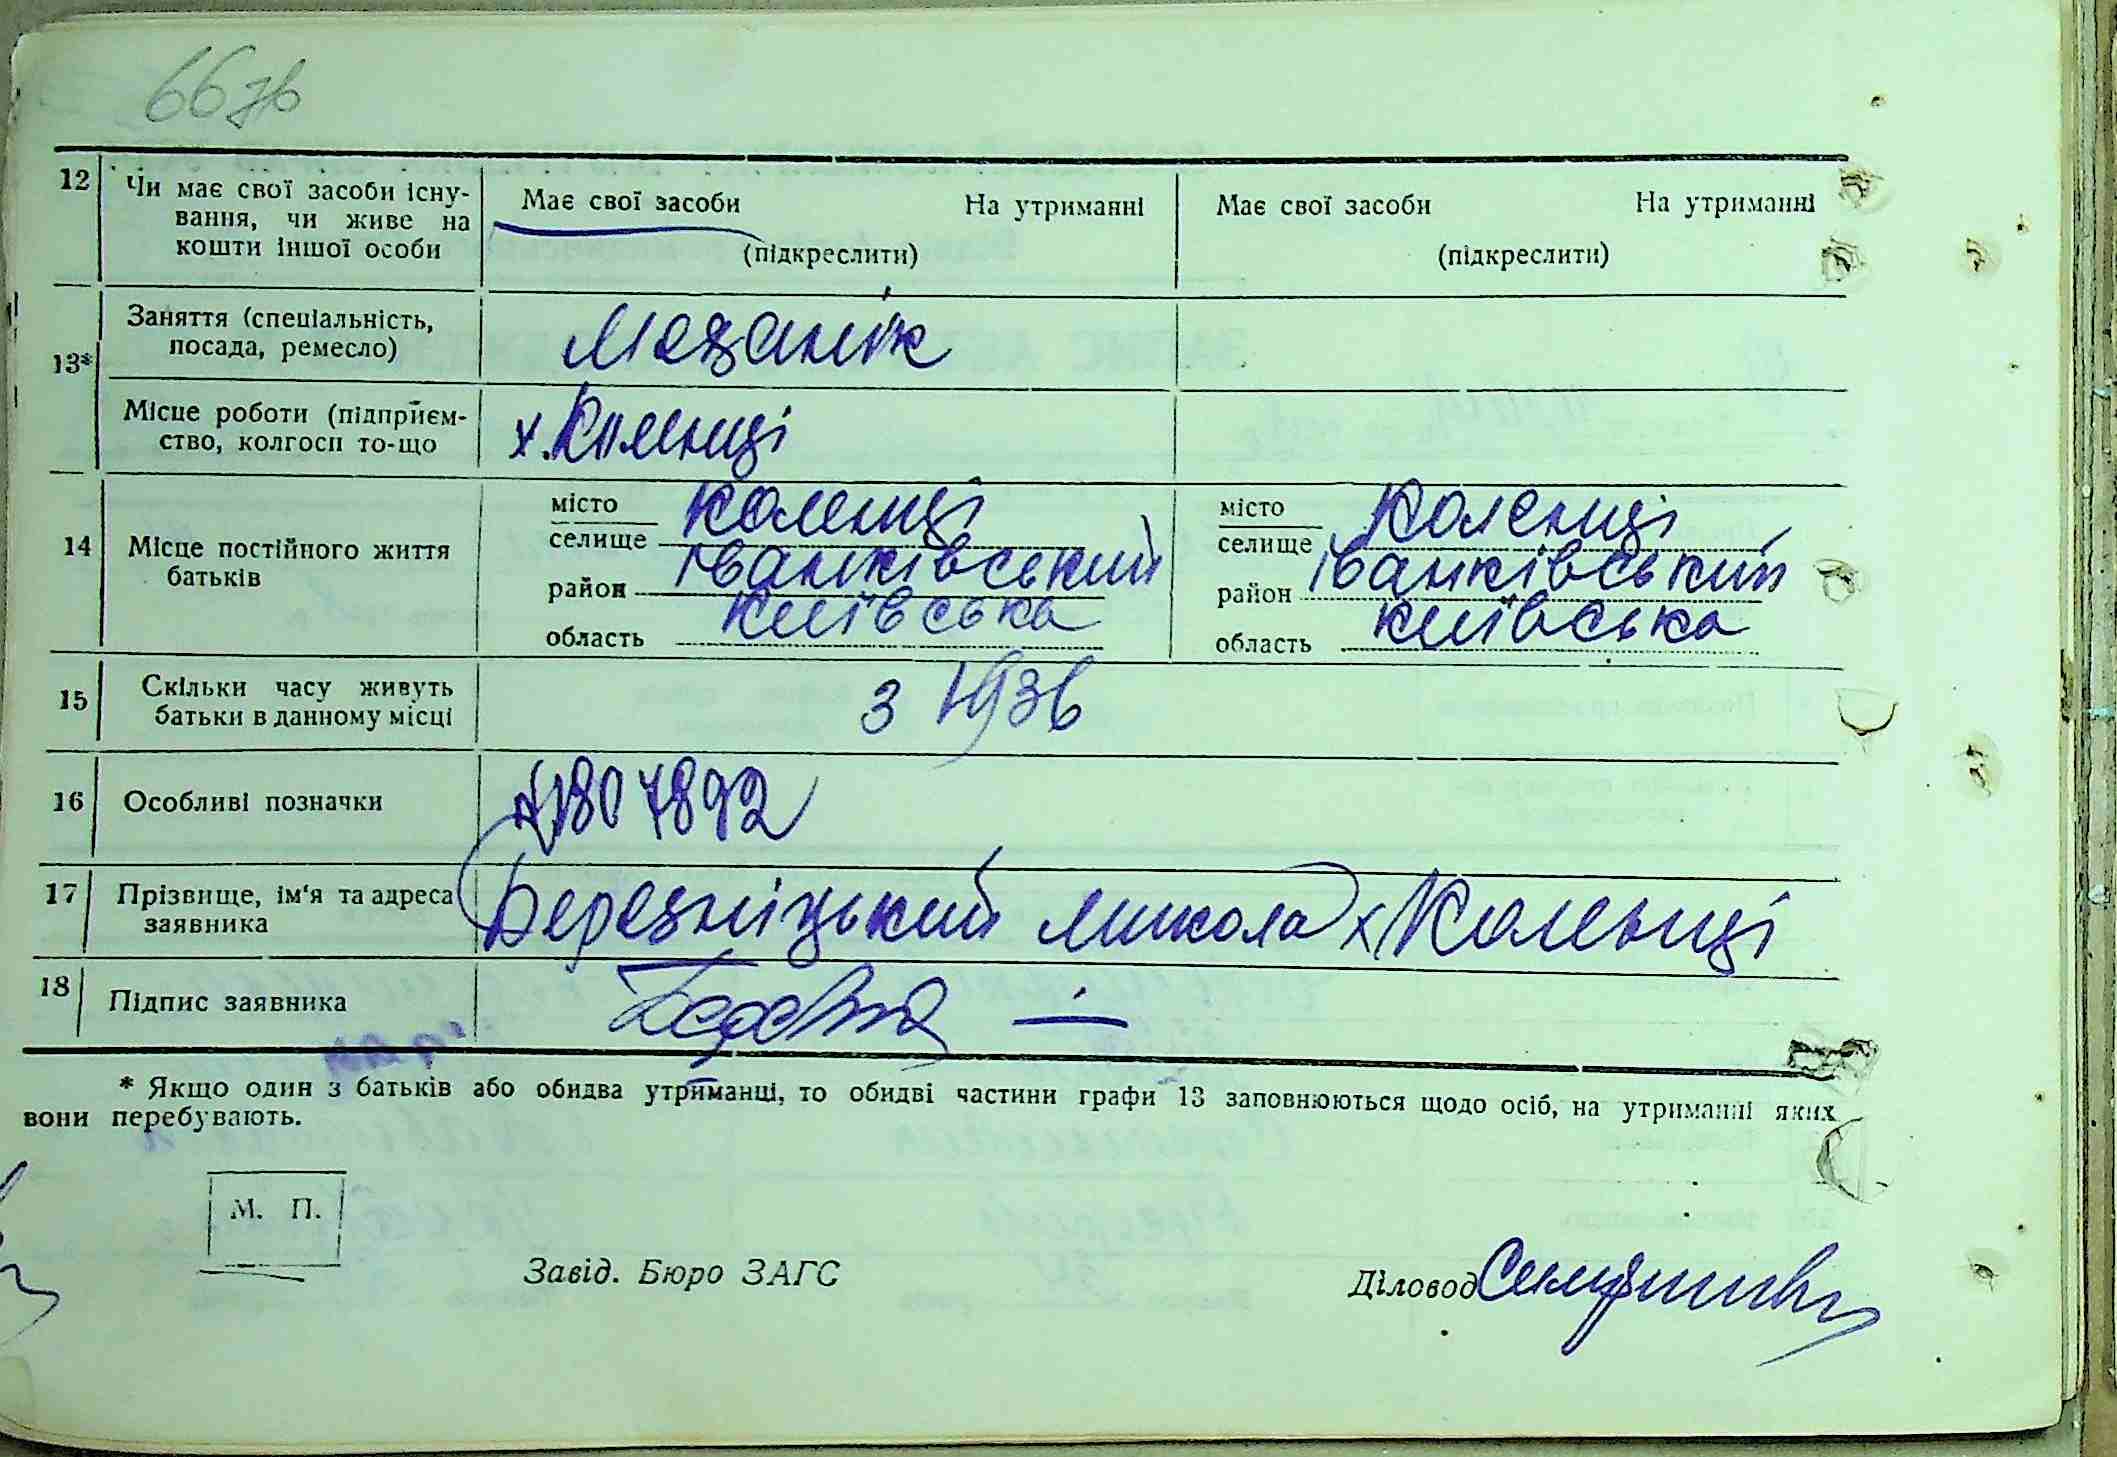 66 зв
12 Чи має свої засоби існу-
вання, чи живе на
кошти іншої особи
Має свої засоби На утриманні
(підкреслити)
Має свої засоби На утриманні
(підкреслити)
13* Заняття (спеціальність,
посада, ремесло)
Механік
Місце роботи (підприєм-
ство, колгосп то-що
х. Коленці
14 Місце постійного життя
батьків
місто
селище Коленці
район Іванківський
область Київська
місто
селище Коленці
район Іванківський
область Київська
15 Скільки часу живуть
батьки в данному місці
З 1936
16 Особливі позначки
807892
17 Прізвище, ім'я та адреса
заявника
Березніцький Микола х Коленці
18 Підпис заявника
* Якщо один з батьків або обидва утриманці, то обидві частини графи 13 заповнюються щодо осіб, на утриманні яких
вони перебувають.
М. П.
Завід. Бюро ЗАГС
Діловод